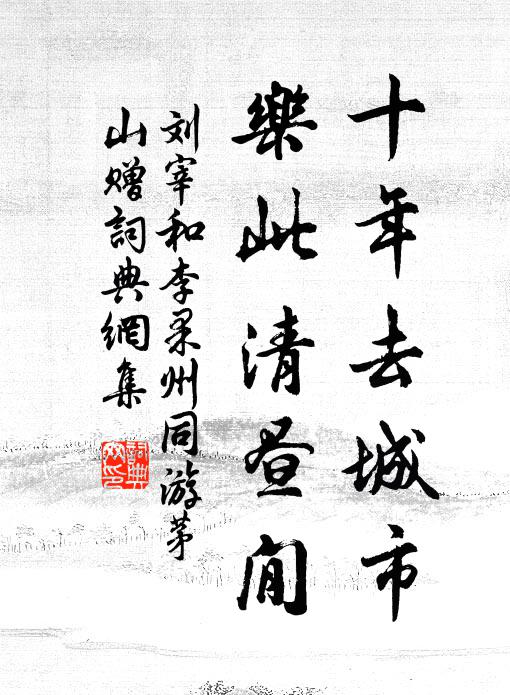 十年去城市
樂此清昼閒
刘宰和李果州同游茅
山赠詞典網集